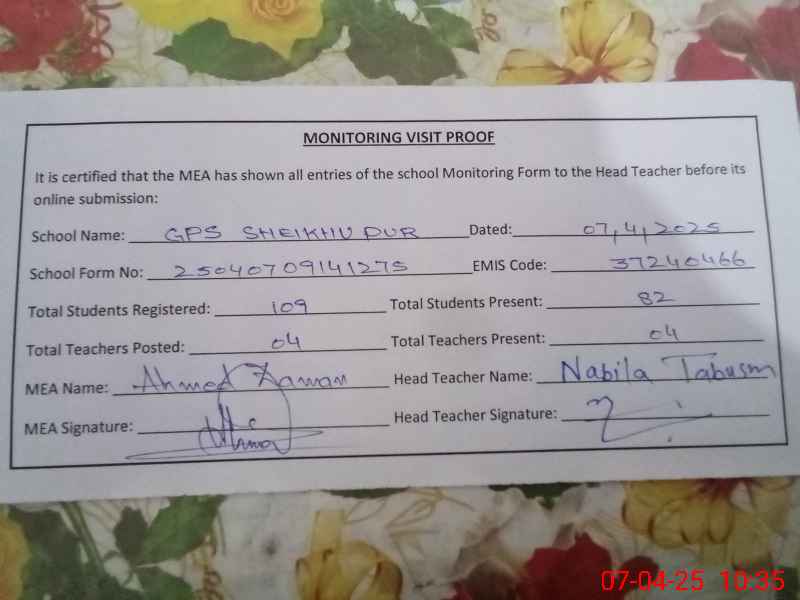 MONITORING VISIT PROOF
It is certified that the MEA has shown all entries of the school Monitoring Form to the Head Teacher before its
online submission:
School Name: GPS SHEIKHUPUR Dated: 07,4,2025
School Form No: 25040709141275 EMIS Code: 37240466
Total Students Registered: 109 Total Students Present: 82
Total Teachers Posted: 04 Total Teachers Present: 04
MEA Name: Ahmed Zaman Head Teacher Name: Nabila Tabusm
MEA Signature: Head Teacher Signature:
07-04-25 10:35